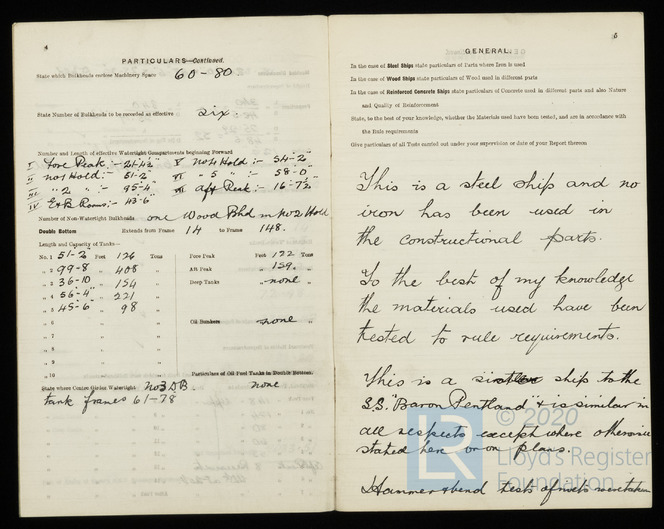 4
PARTICULARS—Continued.
State which Bulkheads enclose Machinery Space 60-80
State Number of Bulkheads to be recorded as effective six.
Number and Length of effective Watertight Compartments beginning Forward
I Fore Peak:- 21-4½" V No 4 Hold :- 54-2"
II No 1 Hold:- 51-2" VI " 5 " :- 58-0"
III " 2 " :- 95-4" VII Aft Peak:- 16-7½"
IV E&B Rooms:- 43-6"
Number of Non-Watertight Bulkheads one Wood Bhd in No 2 Hold
Double Bottom Extends from Frame 14 to Frame 148.
Length and Capacity of Tanks—
No. 1 51-2" Feet 126 Tons Fore Peak Feet 122 Tons
" 2 99-8 " 408 " Aft Peak " 159. "
" 3 36-10 " 154 " Deep Tanks " none "
" 4 56-4" " 221 "
" 5 45-6 " 98 "
" 6 " " Oil Bunkers none "
" 7 " "
" 8 " "
" 9 " "
" 10 Particulars of Oil Fuel Tanks in Double Bottom
State where Centre Girder Watertight No 3 DB. none
tank frames 61-78
5
GENERAL.
In the case of Steel Ships state particulars of Parts where Iron is used
In the case of Wood Ships state particulars of Wood used in different parts
In the case of Reinforced Concrete Ships state particulars of Concrete used in different parts and also Nature
and Quality of Reinforcement
State, to the best of your knowledge, whether the Materials used have been tested, and are in accordance with
the Rule requirements
Give particulars of all Tests carried out under your supervision or date of your Report thereon
This is a steel ship and no
iron has been used in
the constructional parts.
To the best of my knowledge
the materials used have been
tested to rule requirements.
This is a sister ship to the
S.S. "Baron Pentland" & is similar in
all respects except where otherwise
stated here or on plans.
Hammer & bend tests of rivets were taken
© 2020
LR
Lloyd's Register
Foundation